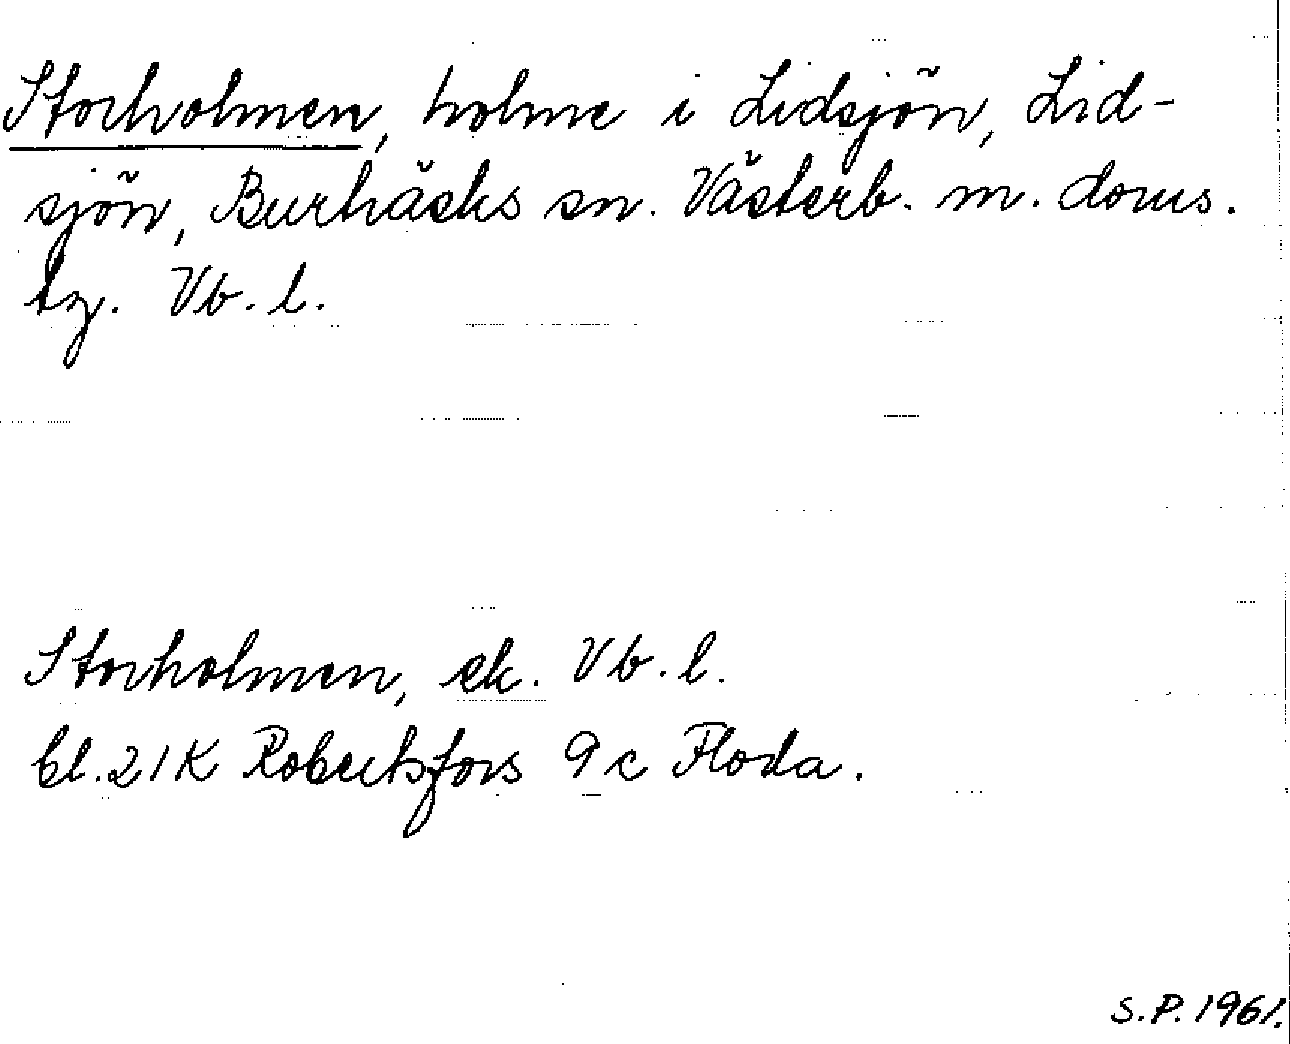 Storholmen, holme i Lidsjön, Lid-
sjön, Burträsks sn. Västerb. m. doms.
tg. Vb. l.
Storholmen, ek. Vb. l.
bl. 21K Robertsfors 9c Floda.
S.P. 1961.